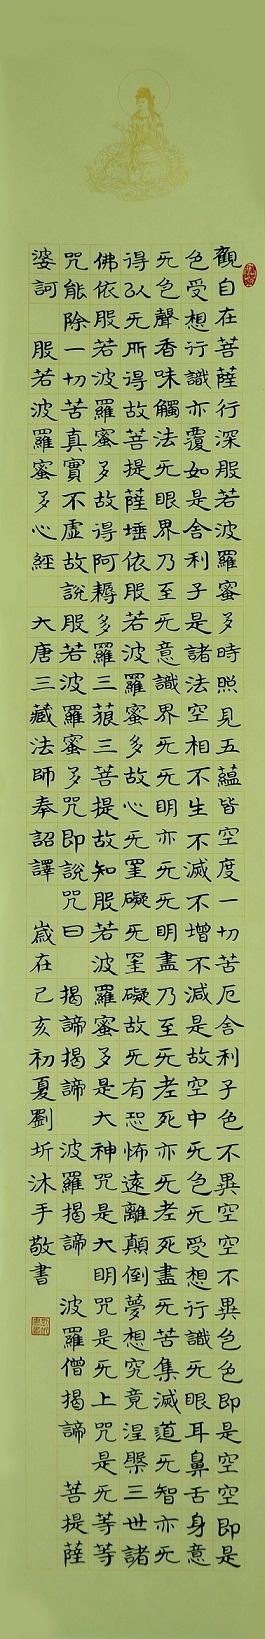 觀自在菩薩行深般若波羅蜜多時照見五蘊皆空度一切苦厄舍利子色不異空空不異色色即是空空即是
色受想行識亦覆如是舍利子是諸法空相不生不滅不增不減是故空中无色无受想行識无眼耳鼻舌身意
无色聲香味觸法无眼界乃至无意識界无无明亦无无明盡乃至无老死亦无老死盡无苦集滅道无智亦无
得以无所得故菩提薩埵依般若波羅蜜多故心无罣礙无罣礙故无有恐怖遠離顛倒夢想究竟涅槃三世諸
佛依般若波羅蜜多故得阿耨多羅三藐三菩提故知般若波羅蜜多是大神咒是大明咒是无上咒是无等等
咒能除一切苦真實不虛故說般若波羅蜜多咒即說咒曰 揭諦揭諦 波羅揭諦 波羅僧揭諦 菩提薩
婆訶 般若波羅蜜多心經 大唐三藏法師奉詔譯 歲在己亥初夏劉圻沐手敬書